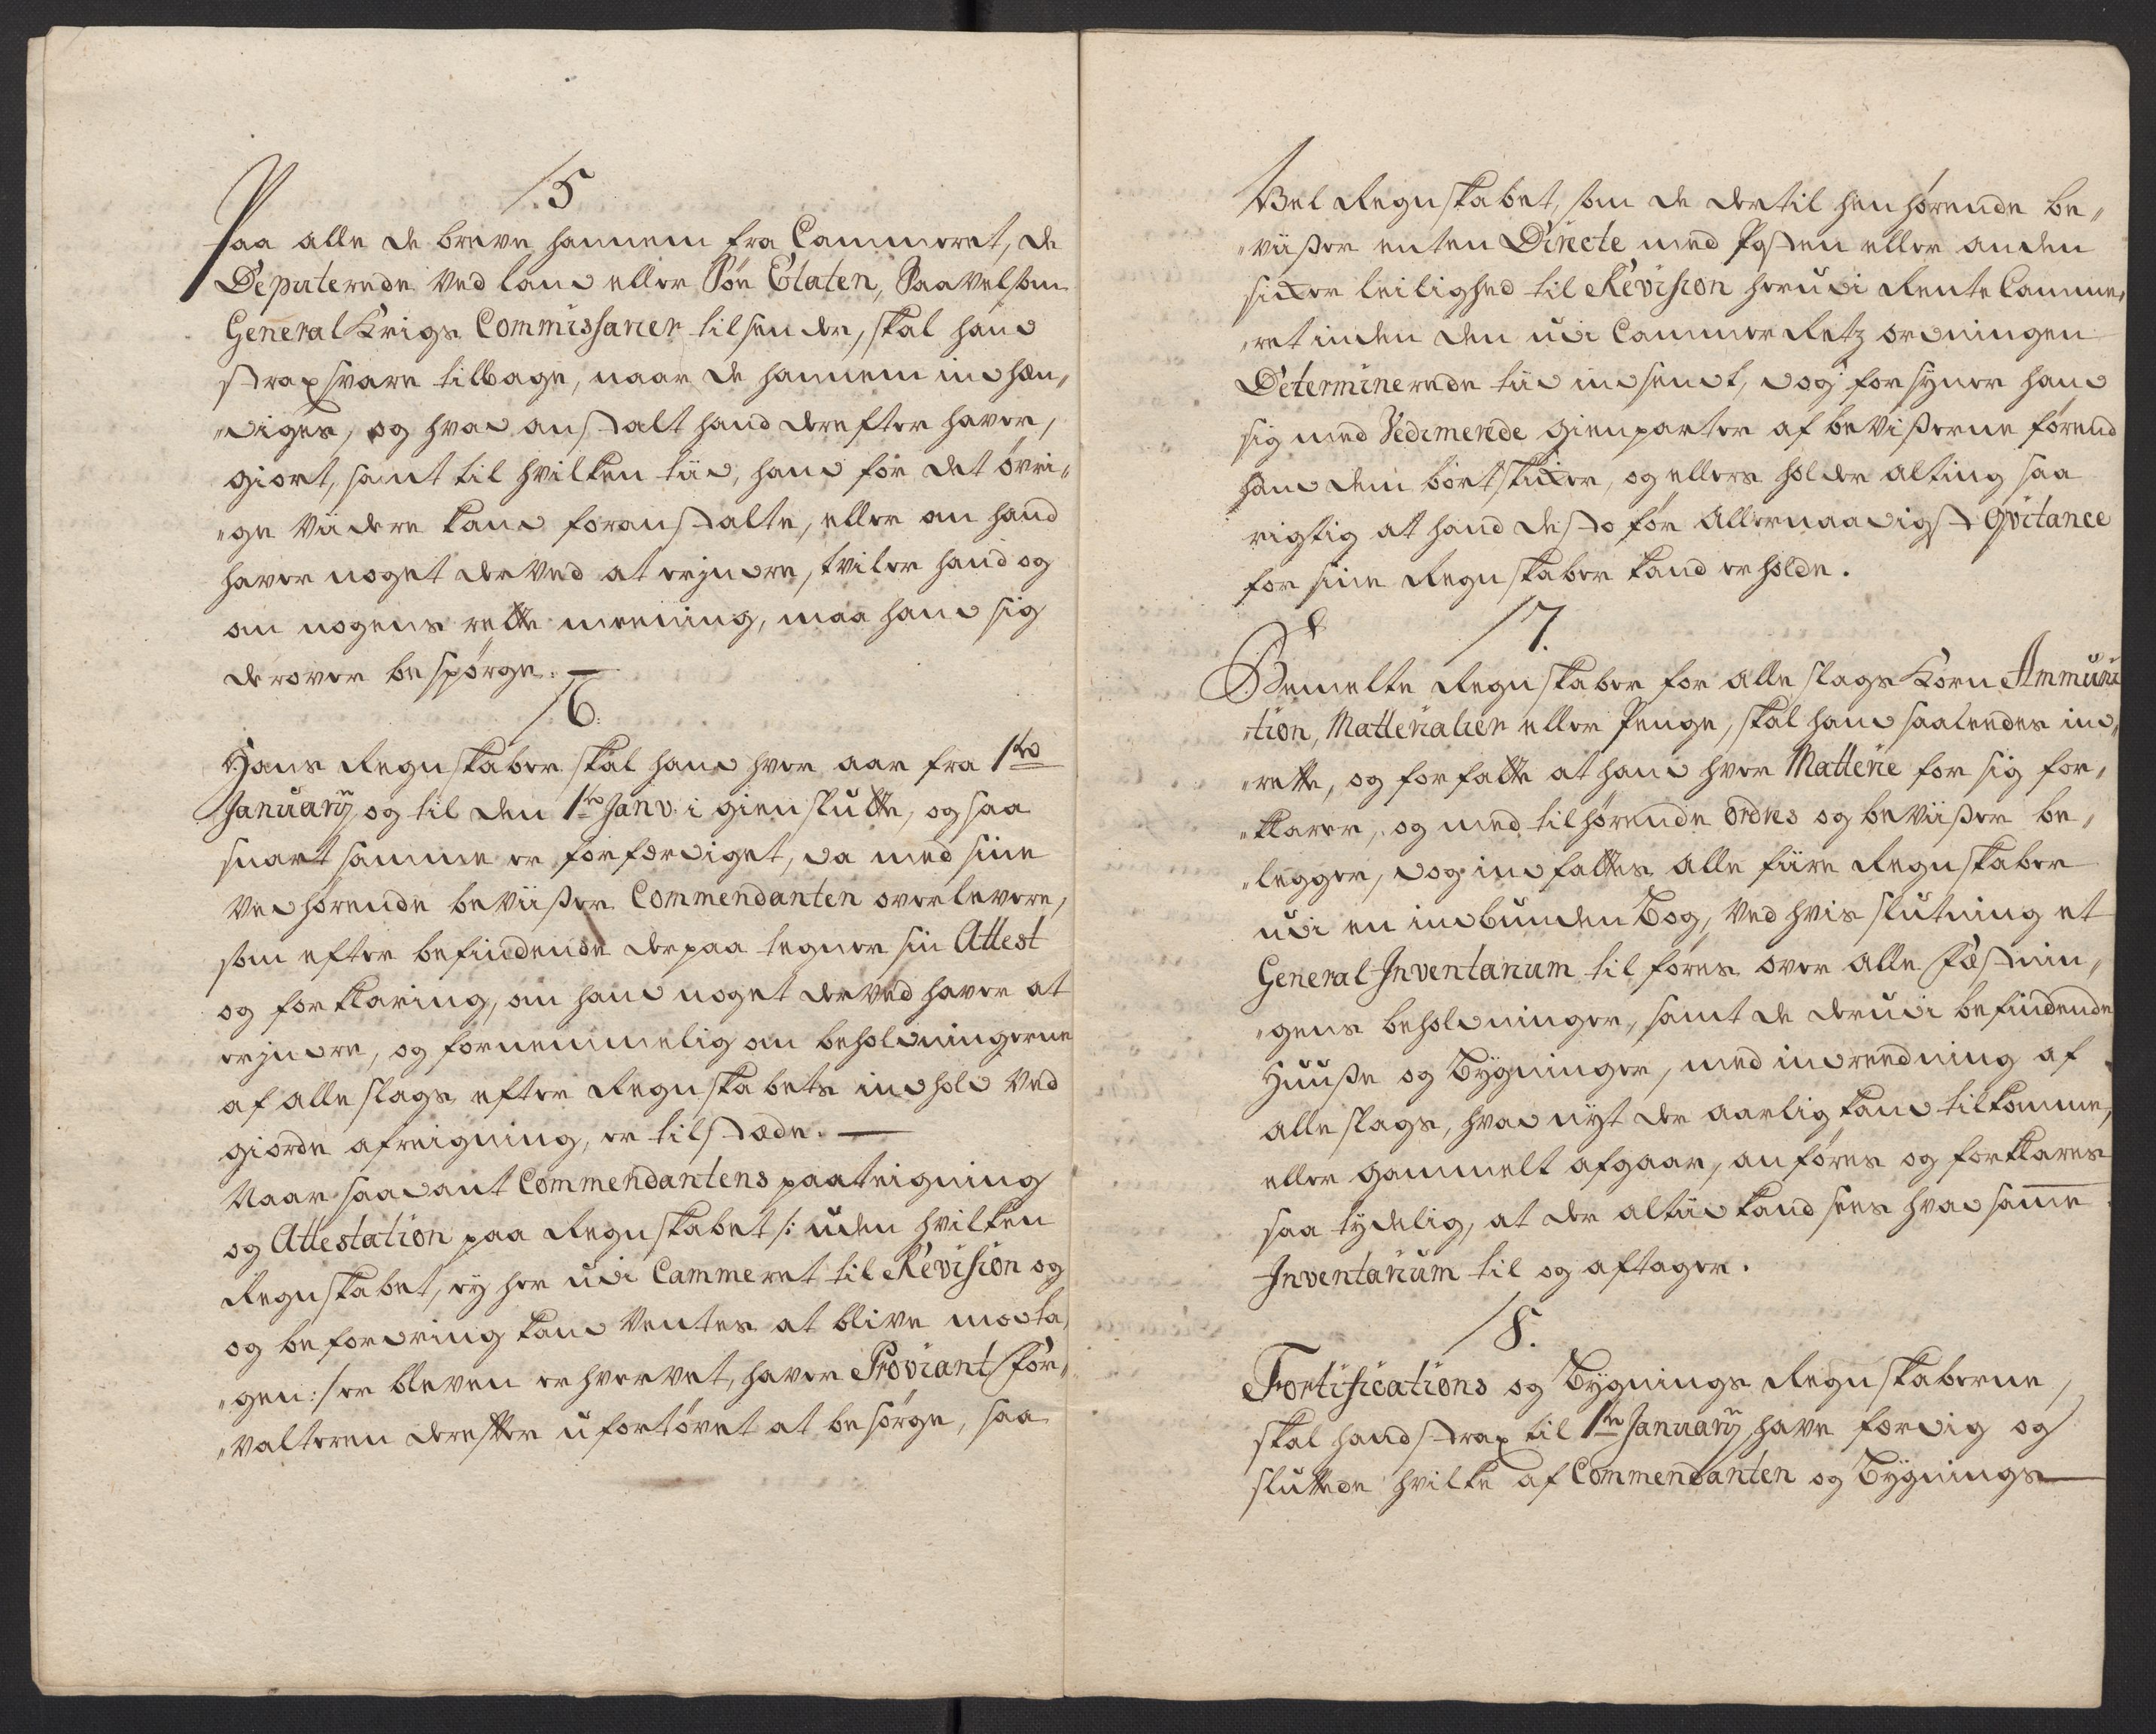 15
Paa alle de breve hannem fra Cammeret, de
Deputerede ved land eller Söe Etaten, Saavelsom
General Krigs Commissarier tilsender, skal hand
strax svare tilbage, naar de hannem indhæn„
„diges, og hvad anstalt hand derefter haver,
giort, samt til hvilken tiid, hand for det övri„
„ge viidere kand foranstalte, eller om hand
haver noget derved at erjndre, tviler hand og
om nogens rette meening, maa hand sig
derover bespörge. —
16.
Hans Regnskaber skal hand hver aar fra 1te
January og til den 1te Janv. i gien slutte, og saa
snart samme er forfærdiget, da med sine
vedhörende beviißer Commendanten overlevere,
som efter befindende derpaa tegner sin Attest
og forklaring, om hand noget derved haver at
erjndre, og fornemmelig om beholdningerne
af alle slags efter Regnskabets indhold ved
giorde afreigning, er tilstæde. —
Naar saadant Commendantens paateigning
og Attestation paa Regnskabet /: uden hvilken
Regnskabet, ey her udi Cammeret til Revision og
og befordring kand ventes at blive modta„
„gen :/ er bleven erhvervet, haver Proviant For„
„valteren derefter ufortövet at besörge, saa
vel Regnskabet, som de dertil henhörende be„
„viißer enten Directe med Posten eller anden
sicker leilighed til Revision herudi Rente Camme„
„ret inden den udi Cammer Retz ordningen
Determinerede tiid indsendt, dog forsyner hand
sig med Vedimerede gienparter af bevißerne förend
hand dem bortskicker, og ellers holder alting saa
rigtig at hand desto för allernaadigst qvitance
for sine Regnskaber kand erholde.
17.
Bemelte Regnskaber for alle slags Korn Ammuni
„tion, Matterialier eller Penge, skal hand saaledes ind„
„rette, og forfatte at hand hver Matterie for sig for„
„klarer, og med tilhörende ordres og beviißer be„
„legger, dog indfattes alle fiire Regnskaber
udi en indbunden Bog, ved hvis slutning et
General Inventarium tilföres over alle Fæstnin„
„gens beholdninger, samt de derudi befindende
Huuße og Bygninger, med indreedning af
alle slags, hvad nyt der aarlig kand tilkomme,
eller gammelt afgaar, anföres og forklares
saa tydelig, at der altiid kand sees hvad samme
Inventarium til og aftager.
18.
Fortifications og Bygnings Regnskaberne,
skal hand strax til 1te January have færdig og
sluttede hvilke af Commendanten og Bygnings—